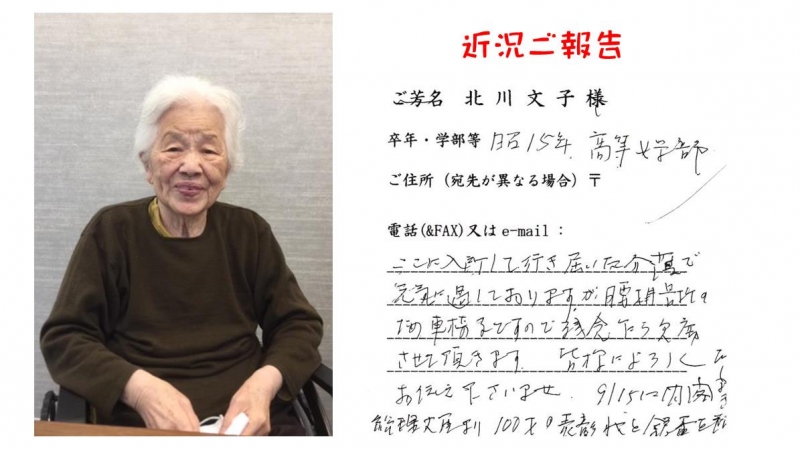 近況ご報告
ご芳名 北川文子様
卒年・学部等 昭15年、高等女学部
ご住所（宛先が異なる場合）〒
電話(&FAX)又は e-mail：
ここに入所して行き届いた介護で
元気に過しておりますが腰椎骨折の
ため車椅子ですので残念乍ら欠席
させて頂きます。皆様によろしく
お伝え下さいませ。9/15に内閣
総理大臣より100才の表彰状と銀盃を